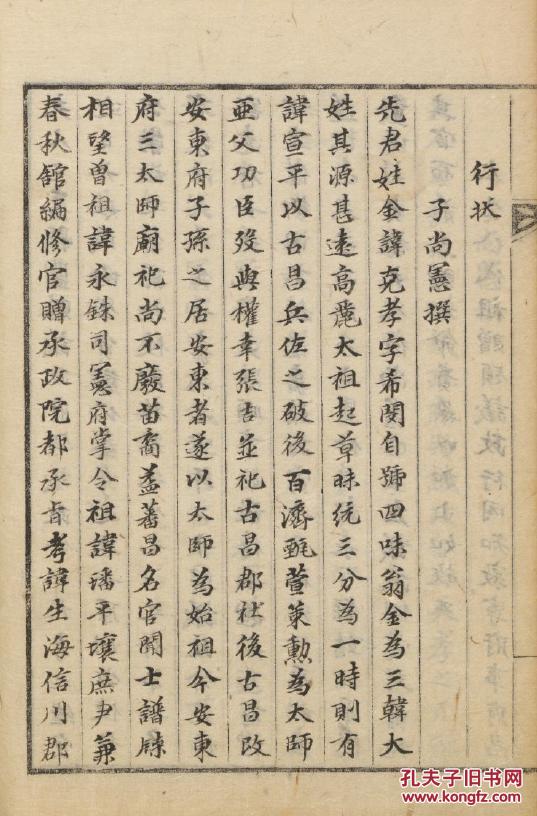 行状
子尚憲撰
先君姓金諱克孝字希閔自號四味翁金為三韓大
姓其源甚遠高麗太祖起草昧統三分為一時則有
諱宣平以古昌兵佐之破後百濟甄萱策勳為太師
亜父功臣歿與權幸張吉並祀古昌郡社後古昌改
安東府子孫之居安東者遂以太師為始祖今安東
府三太師廟祀尚不廢苗裔益蕃昌名官聞士譜牒
相望曾祖諱永銖司憲府掌令祖諱璠平壤庶尹兼
春秋館編修官贈承政院都承旨考諱生海信川郡
孔夫子旧书网
kongfz.com